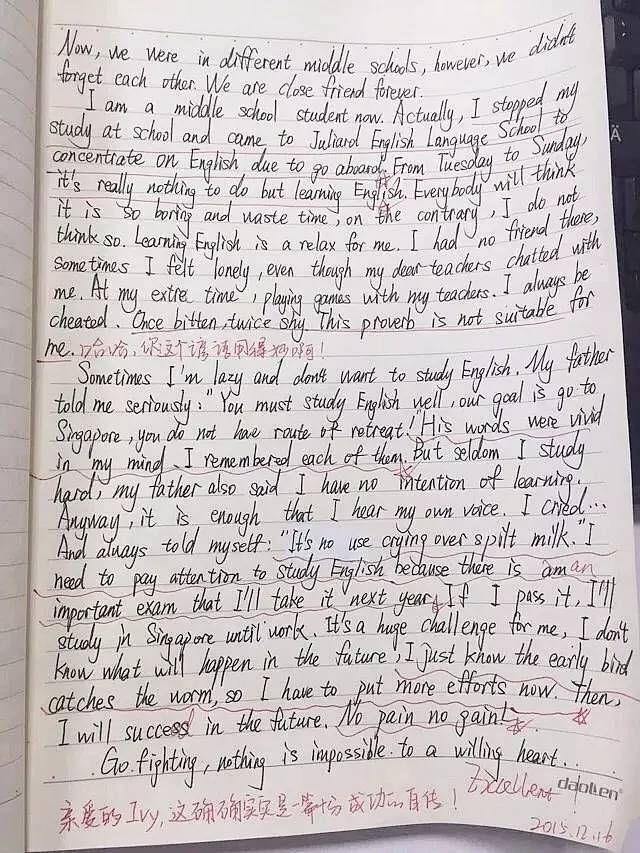 Now, we were in different middle schools, however, we didn't
forget each other. We are close friend forever.
I am a middle school student now. Actually, I stopped my
study at school and came to Juliard English Language School to
concentrate on English due to go aboard. From Tuesday to Sunday,
it's really nothing to do but learning English. Everybody will think
it is so boring and waste time, on the contrary, I do not
think so. Learning English is a relax for me. I had no friend there,
sometimes I felt lonely, even though my dear teachers chatted with
me. At my extre time, playing games with my teachers. I always be
cheated. Once bitten, twice shy. This proverb is not suitable for
me. 哈哈,你这个谚语用得妙啊!
Sometimes I'm lazy and don't want to study English. My father
told me seriously: "You must study English well, our goal is go to
Singapore, you do not have route of retreat!" His words were vivid
in my mind. I remembered each of them. But seldom I study
hard, my father also said I have no intention of learning.
Anyway, it is enough that I hear my own voice. I cried...
And always told myself: "It's no use crying over spilt milk." I
need to pay attention to study English because there is am an
important exam that I'll take it next year. If I pass it, I'll
study in Singapore until work. It's a huge challenge for me, I don't
know what will happen in the future, I just know the early bird
catches the worm, so I have to put more efforts now. Then,
I will success in the future. No pain no gain!
Go fighting, nothing is impossible to a willing heart..
Excellent!
daolen
亲爱的 Ivy, 这确确实实是一篇十分成功的自传!
2015.12.16